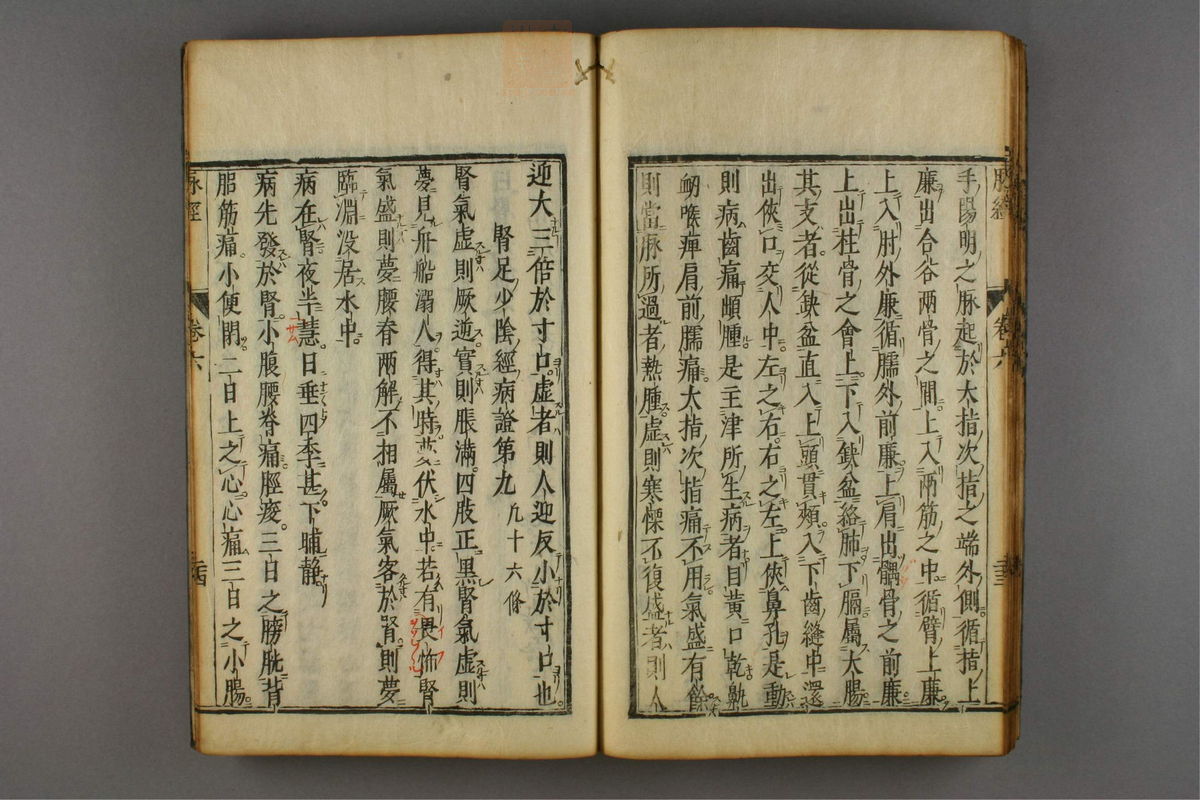 手陽明之脉起於大指次指之端外側循指上
廉出合谷兩骨之間上入兩筋之中循臂上廉
上入肘外廉循臑外前廉上肩出髃骨之前廉
上出柱骨之會上下入缺盆絡肺下膈屬大腸
其支者從缺盆直入上頭貫頰入下齒縫中還
出俠口交人中左之右右之左上俠鼻孔是動
則病齒痛䪼腫是主津所生病者目黃口乾鼽
衂喉痺肩前臑痛大指次指痛不用氣盛有餘
則當脉所過者熱腫虛則寒慄不復盛者則人
迎大三倍於寸口虛者則人迎反小於寸口也
腎足少陰經病證第九 凡十六條
腎氣虛則厥逆實則脹滿四肢正黑腎氣虛則
夢見舟船溺人得其時夢伏水中若有畏怖腎
氣盛則夢腰脊兩解不相屬厥氣客於腎則夢
臨淵没居水中
病在腎夜半慧日垂四季甚下晡静
病先發於腎小腹腰脊痛脛痠三日之膀胱背
䏚筋痛小便閉二日上之心心痛三日之小腸
脉經
卷六